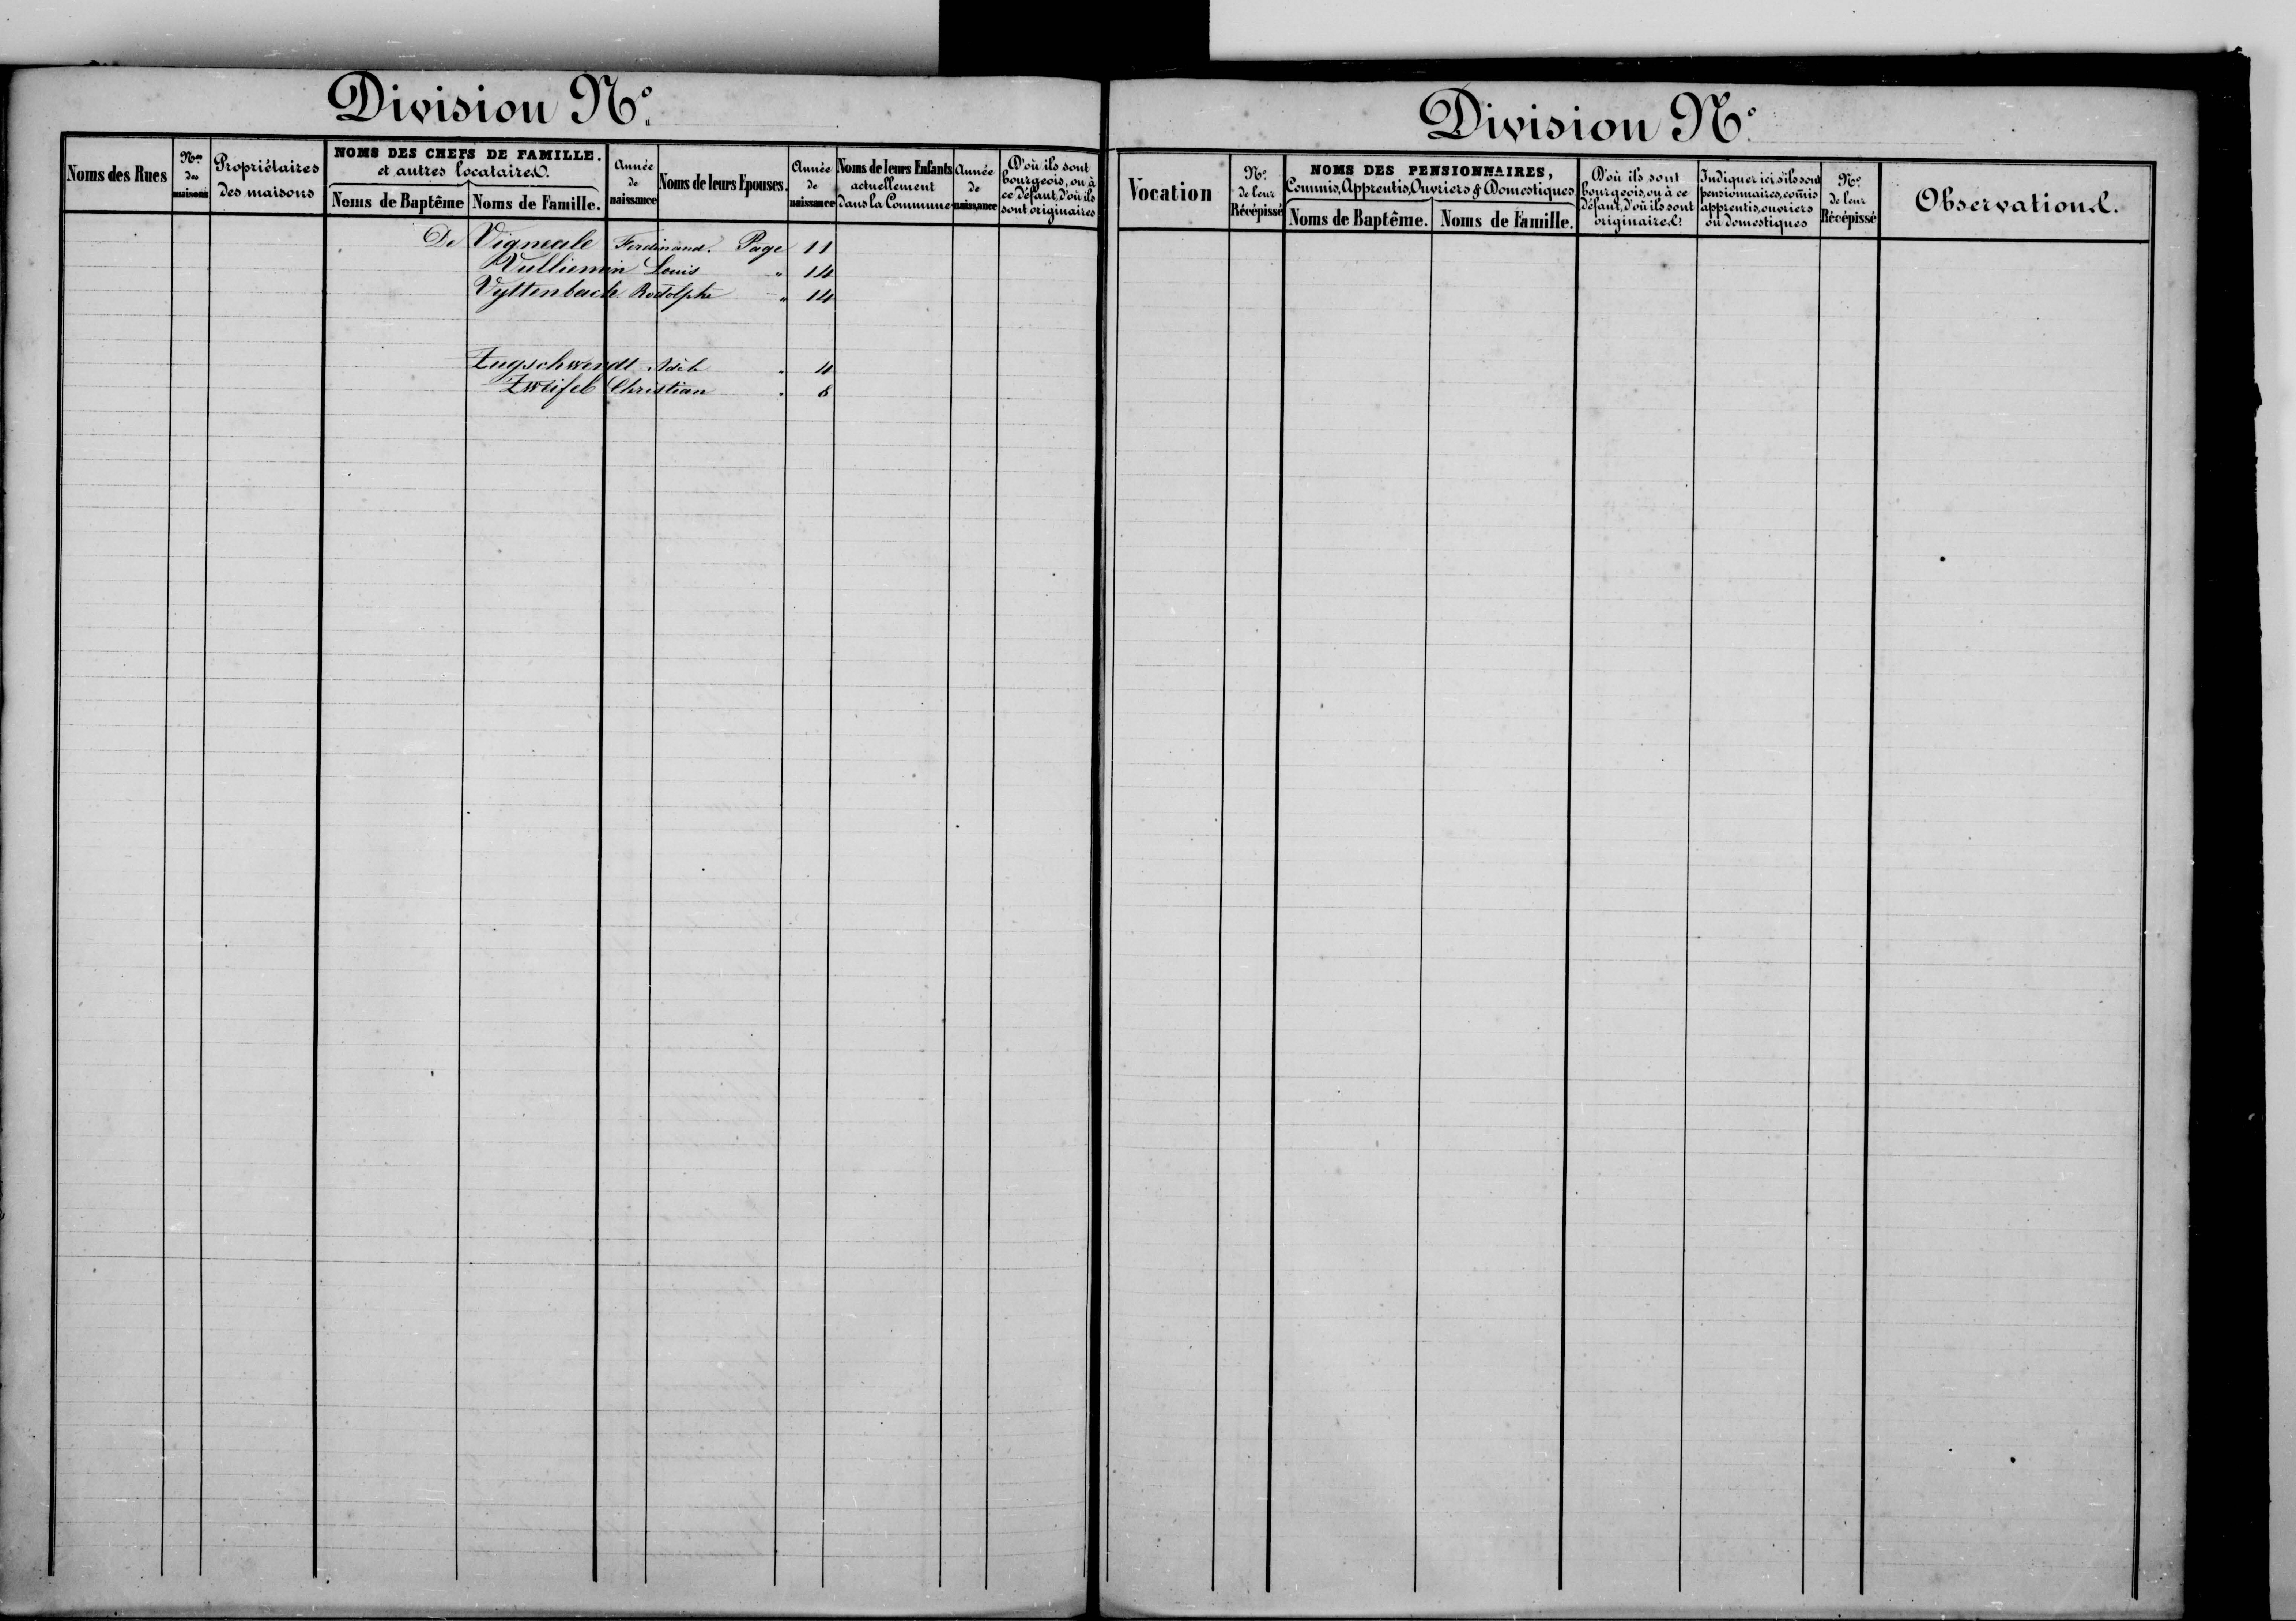 Division N°.
Noms des Rues
Nos des maisons
Propriétaires des maisons
NOMS DES CHEFS DE FAMILLE.
et autres locataires.
Noms de Baptême
Noms de Famille.
Année de naissance
Noms de leurs Epouses.
Année de naissance
Noms de leurs Enfants actuellement dans la Commune
Année de naissance
D'où ils sont bourgeois, ou à ce défaut, d'où ils sont originaires
De Vigneale Ferdinand. Page 11
Vulliemin Louis " 14
Vyttenbach Rodolphe " 14
Zugschwerdt " 4
Zweifel Christian " 8
Division N°.
Vocation
N° de leur Récépissé
NOMS DES PENSIONNAIRES,
Commis, Apprentis, Ouvriers & Domestiques
Noms de Baptême.
Noms de Famille.
D'où ils sont bourgeois, ou à ce défaut, d'où ils sont originaires.
Indiquer ici s'ils sont pensionnaires, com̃is apprentis, ouvriers ou domestiques
N° de leur Récépissé
Observations.